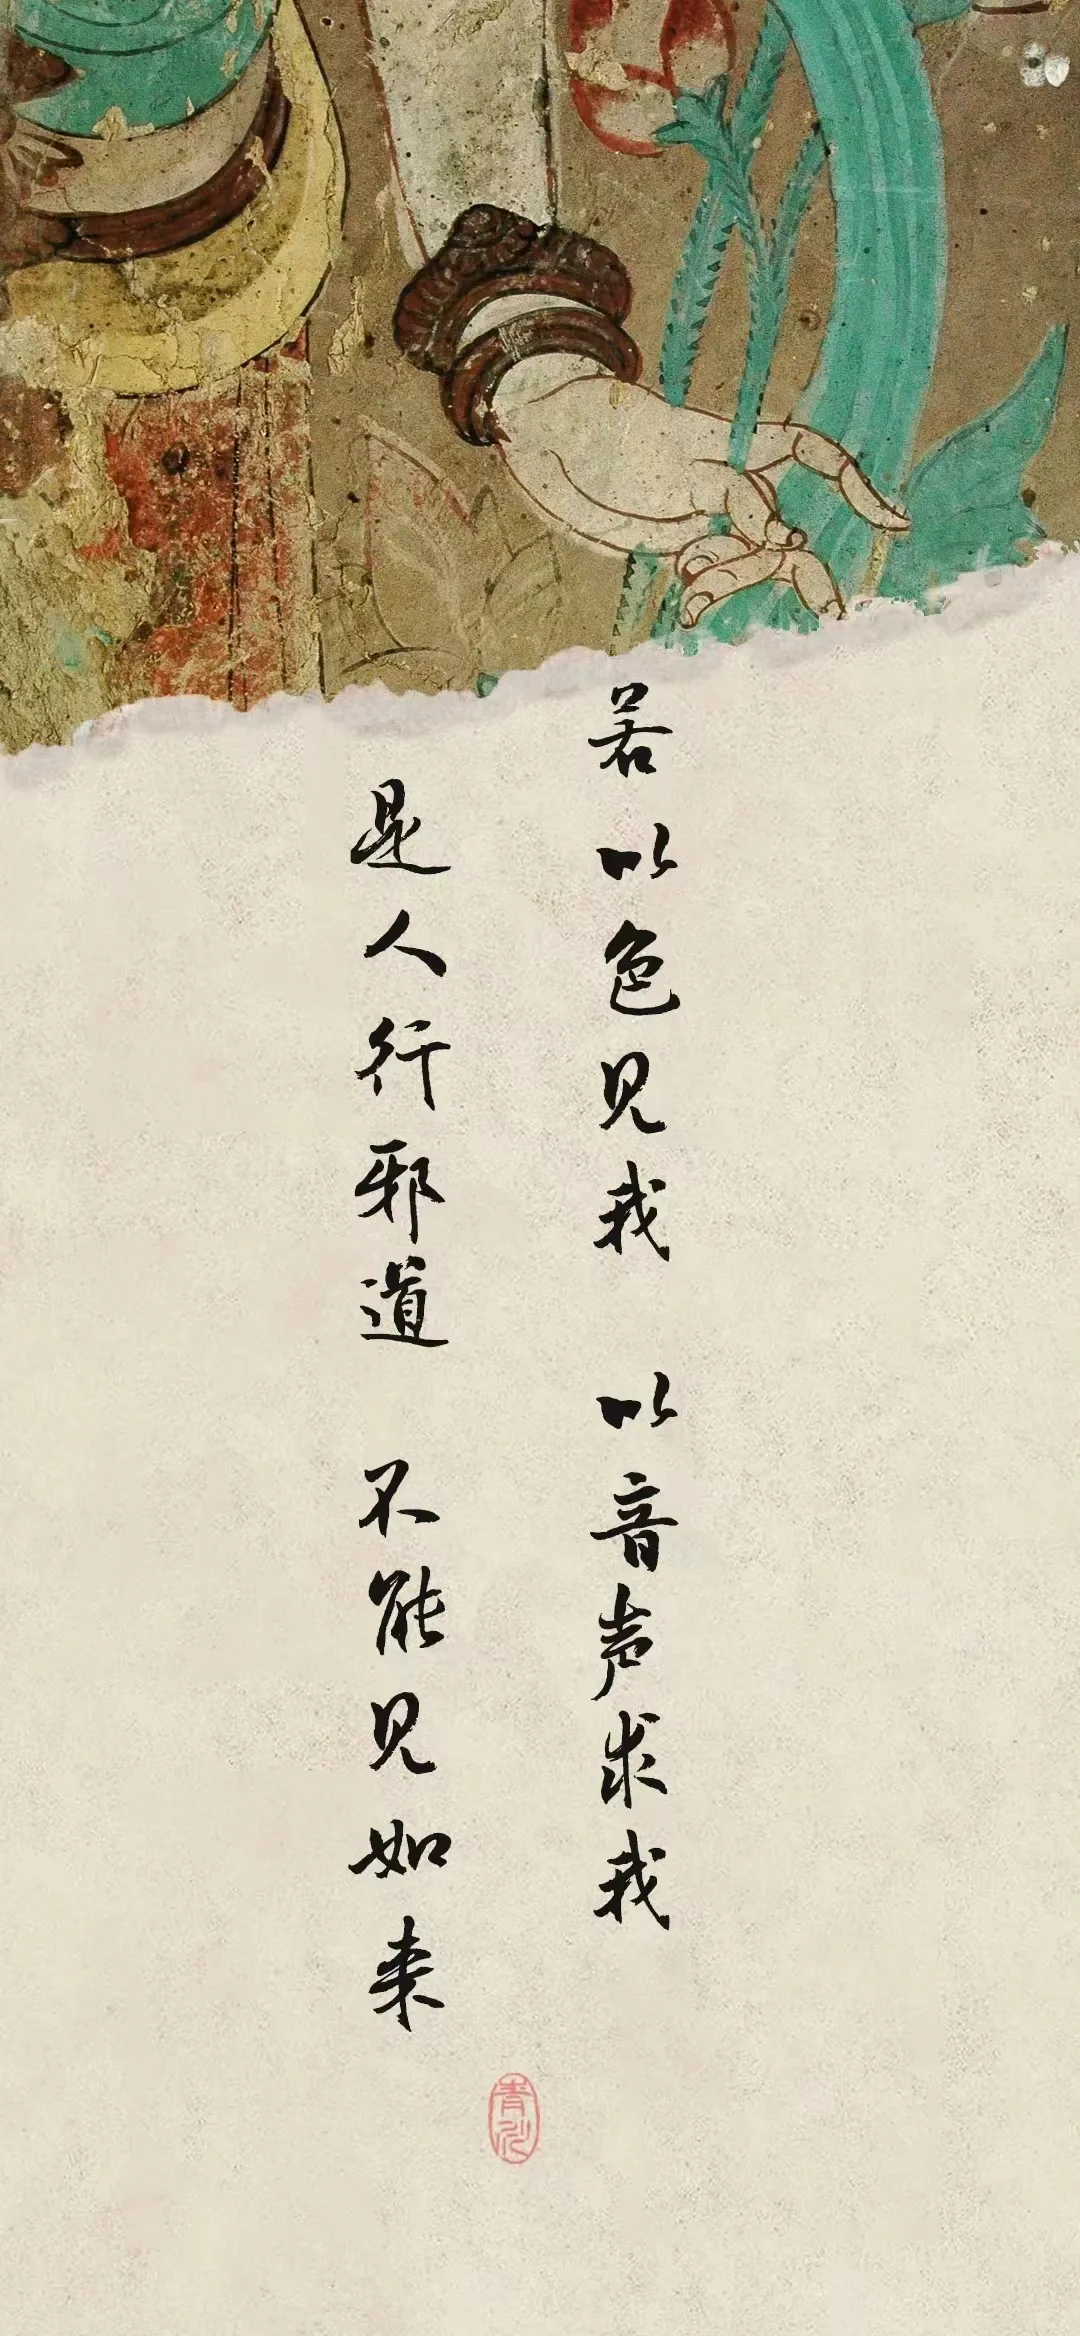 若以色见我 以音声求我
是人行邪道 不能见如来